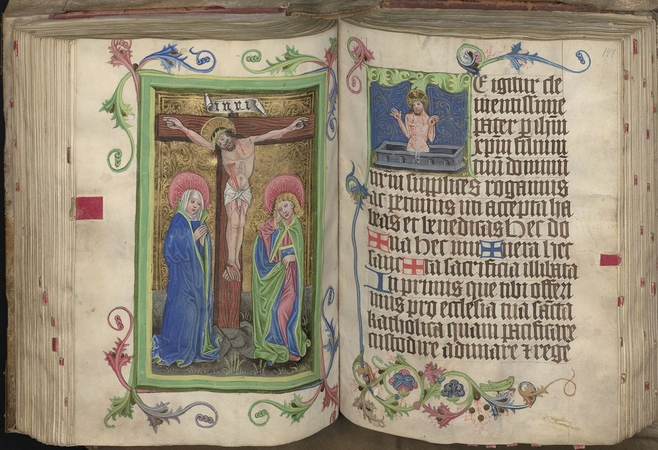 inri
E igitur cle
mentissime
pater p ihm
xpm filium
tuū dominū
nrm supplices rogamus
ac petimus uti accepta ha
beas et benedicas Hec do
✠ na hec mu ✠ nera hec
sanc ✠ ta sacrificia illibata
In primis que tibi offeri
mus pro ecclesia tua sancta
katholica quam pacificare
custodire adunare ⁊ rege